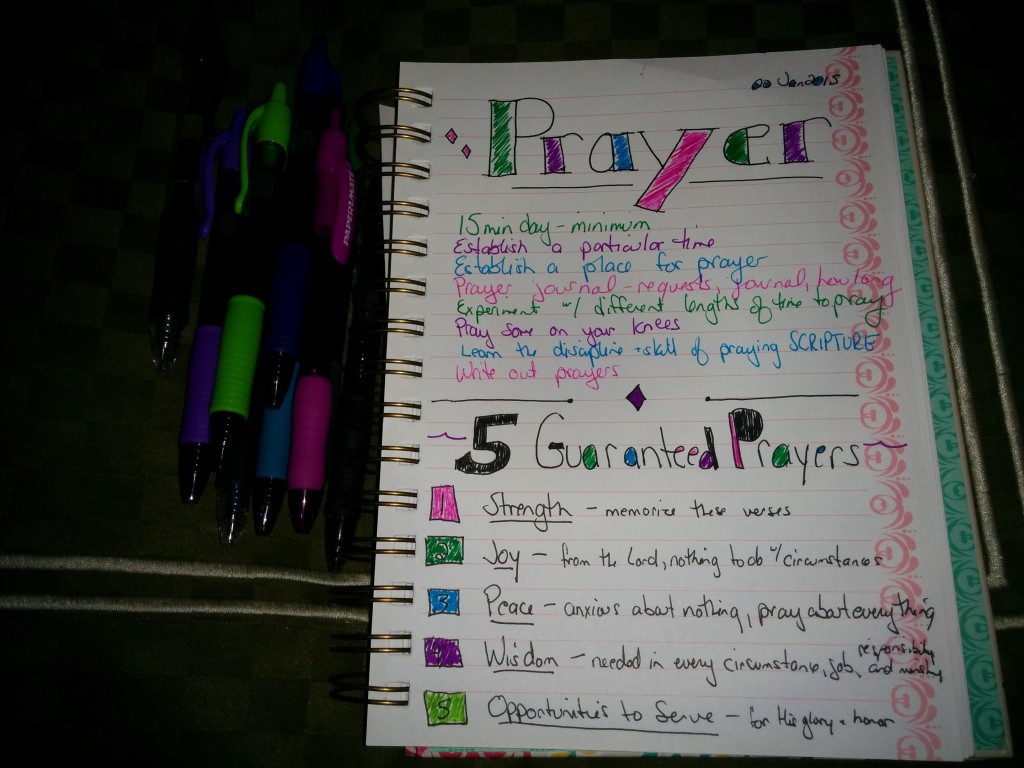 Jan 2015
Prayer
15 min day - minimum
Establish a particular time
Establish a place for prayer
Prayer journal - requests, journal, how long
Experiment w/ different lengths of time to pray
Pray some on your knees
Learn the discipline + skill of praying SCRIPTURE
Write out prayers
5 Guaranteed Prayers
1 Strength - memorize these verses
2 Joy - from the Lord, nothing to do w/ circumstances
3 Peace - anxious about nothing, pray about everything
4 Wisdom - needed in every circumstance, job, responsibility and ministry
5 Opportunities to Serve - for His glory + honor
PAPERMATE